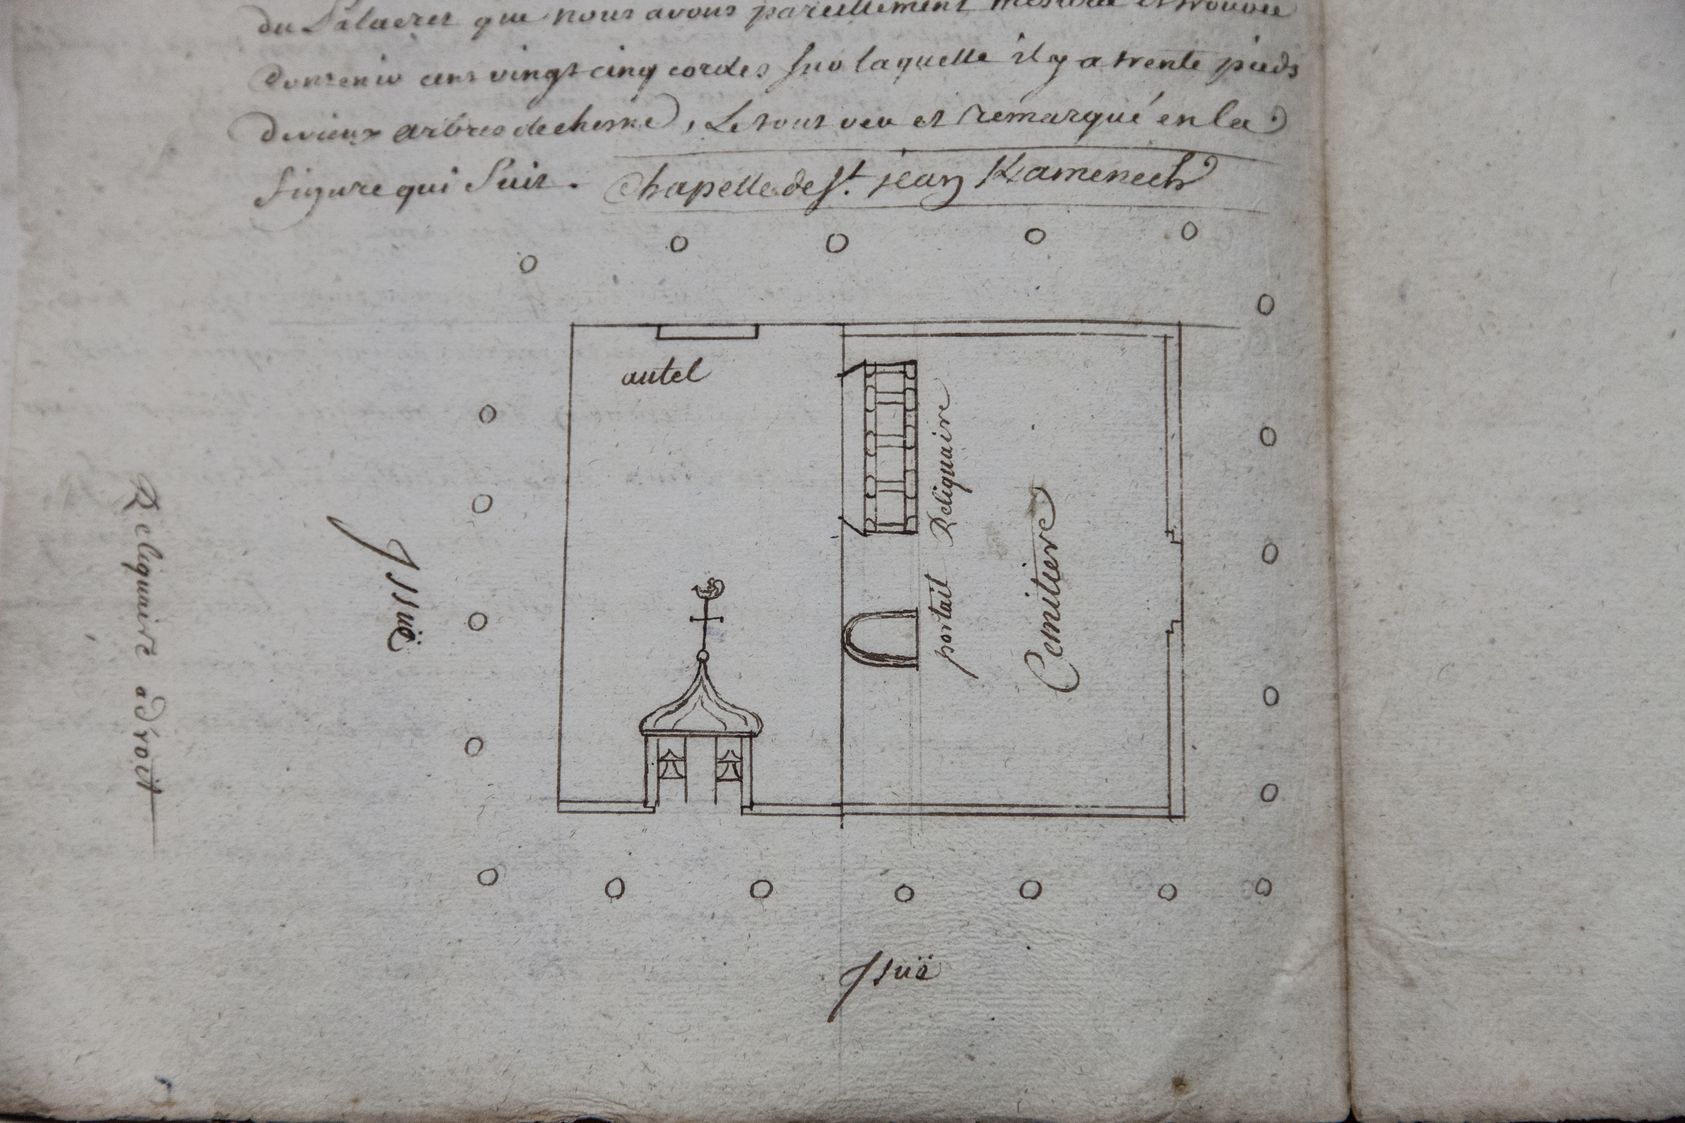 du Palacret que nous avons pareillement mesurée et trouvée
Contenir cens vingt cinq cordes sur laquelle il y a trente pieds
de vieux arbres de chesne, Le tout veu et remarqué en la
figure qui Suit. Chapelle de St. jean Kamenech
autel
Reliquaire
portail
Cemitiere
Issuë
Reliquaire a droit
Issuë